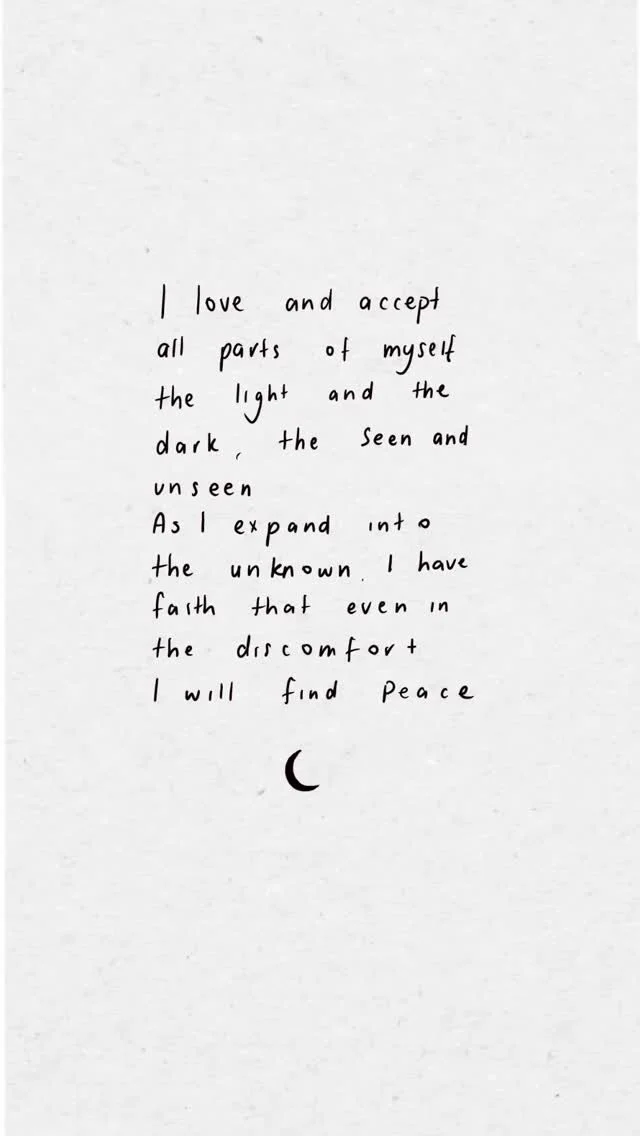 I love and accept
all parts of myself
the light and the
dark, the seen and
unseen
As I expand into
the unknown, I have
faith that even in
the discomfort
I will find peace